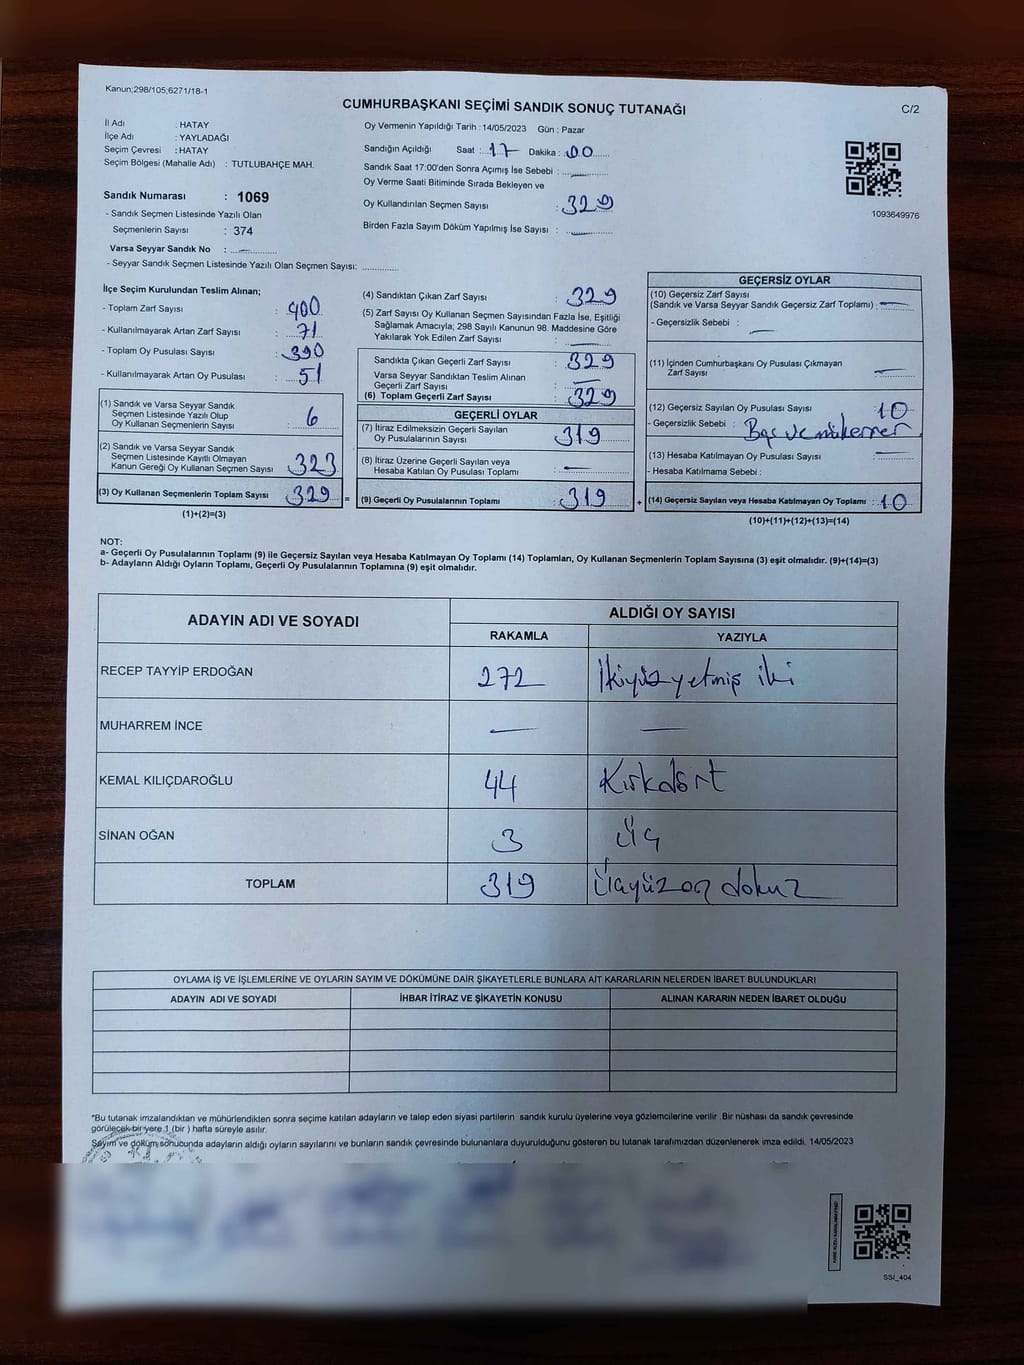 Kanun;298/105;6271/18-1
CUMHURBAŞKANI SEÇİMİ SANDIK SONUÇ TUTANAĞI
C/2
İl Adı : HATAY
İlçe Adı : YAYLADAĞI
Seçim Çevresi : HATAY
Seçim Bölgesi (Mahalle Adı) : TUTLUBAHÇE MAH.
Sandık Numarası : 1069
- Sandık Seçmen Listesinde Yazılı Olan
Seçmenlerin Sayısı : 374
Varsa Seyyar Sandık No : —
- Seyyar Sandık Seçmen Listesinde Yazılı Olan Seçmen Sayısı: ............
Oy Vermenin Yapıldığı Tarih : 14/05/2023 Gün : Pazar
Sandığın Açıldığı Saat : 17 Dakika : 00
Sandık Saat 17:00'den Sonra Açımış İse Sebebi : —
Oy Verme Saati Bitiminde Sırada Bekleyen ve
Oy Kullandırılan Seçmen Sayısı : 329
Birden Fazla Sayım Döküm Yapılmış İse Sayısı : —
1093649976
İlçe Seçim Kurulundan Teslim Alınan;
- Toplam Zarf Sayısı : 400
- Kullanılmayarak Artan Zarf Sayısı : 71
- Toplam Oy Pusulası Sayısı : 390
- Kullanılmayarak Artan Oy Pusulası : 51
(1) Sandık ve Varsa Seyyar Sandık
Seçmen Listesinde Yazılı Olup
Oy Kullanan Seçmenlerin Sayısı : 6
(2) Sandık ve Varsa Seyyar Sandık
Seçmen Listesinde Kayıtlı Olmayan
Kanun Gereği Oy Kullanan Seçmen Sayısı : 323
(3) Oy Kullanan Seçmenlerin Toplam Sayısı : 329 =
(1)+(2)=(3)
(4) Sandıktan Çıkan Zarf Sayısı : 329
(5) Zarf Sayısı Oy Kullanan Seçmen Sayısından Fazla İse, Eşitliği
Sağlamak Amacıyla; 298 Sayılı Kanunun 98. Maddesine Göre
Yakılarak Yok Edilen Zarf Sayısı : —
Sandıkta Çıkan Geçerli Zarf Sayısı : 329
Varsa Seyyar Sandıktan Teslim Alınan
Geçerli Zarf Sayısı : —
(6) Toplam Geçerli Zarf Sayısı : 329
GEÇERLİ OYLAR
(7) İtiraz Edilmeksizin Geçerli Sayılan
Oy Pusulalarının Sayısı : 319
(8) İtiraz Üzerine Geçerli Sayılan veya
Hesaba Katılan Oy Pusulası Toplamı : —
(9) Geçerli Oy Pusulalarının Toplamı : 319 +
GEÇERSİZ OYLAR
(10) Geçersiz Zarf Sayısı
(Sandık ve Varsa Seyyar Sandık Geçersiz Zarf Toplamı) : —
- Geçersizlik Sebebi : —
(11) İçinden Cumhurbaşkanı Oy Pusulası Çıkmayan
Zarf Sayısı : —
(12) Geçersiz Sayılan Oy Pusulası Sayısı : 10
- Geçersizlik Sebebi : Boş ve mükerrer
(13) Hesaba Katılmayan Oy Pusulası Sayısı : —
- Hesaba Katılmama Sebebi :
(14) Geçersiz Sayılan veya Hesaba Katılmayan Oy Toplamı : 10
(10)+(11)+(12)+(13)=(14)
NOT:
a- Geçerli Oy Pusulalarının Toplamı (9) ile Geçersiz Sayılan veya Hesaba Katılmayan Oy Toplamı (14) Toplamları, Oy Kullanan Seçmenlerin Toplam Sayısına (3) eşit olmalıdır. (9)+(14)=(3)
b- Adayların Aldığı Oyların Toplamı, Geçerli Oy Pusulalarının Toplamına (9) eşit olmalıdır.
ADAYIN ADI VE SOYADI
ALDIĞI OY SAYISI
RAKAMLA YAZIYLA
RECEP TAYYİP ERDOĞAN 272 İkiyüzyetmiş iki
MUHARREM İNCE — —
KEMAL KILIÇDAROĞLU 44 Kırkdört
SİNAN OĞAN 3 Üç
TOPLAM 319 Üçyüzon dokuz
OYLAMA İŞ VE İŞLEMLERİNE VE OYLARIN SAYIM VE DÖKÜMÜNE DAİR ŞİKAYETLERLE BUNLARA AİT KARARLARIN NELERDEN İBARET BULUNDUKLARI
ADAYIN ADI VE SOYADI İHBAR İTİRAZ VE ŞİKAYETİN KONUSU ALINAN KARARIN NEDEN İBARET OLDUĞU
*Bu tutanak imzalandıktan ve mühürlendikten sonra seçime katılan adayların ve talep eden siyasi partilerin sandık kurulu üyelerine veya gözlemcilerine verilir. Bir nüshası da sandık çevresinde
görülecek bir yere 1 (bir ) hafta süreyle asılır.
Sayım ve döküm sonucunda adayların aldığı oyların sayılarını ve bunların sandık çevresinde bulunanlara duyurulduğunu gösteren bu tutanak tarafımızdan düzenlenerek imza edildi. 14/05/2023
SSİ_404